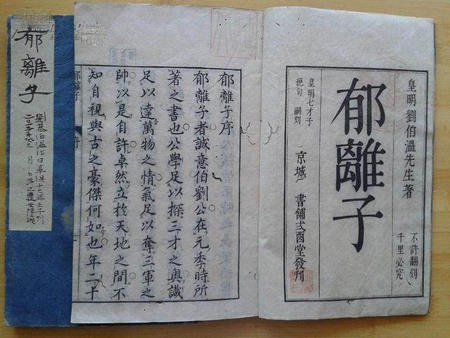 皇明劉伯溫先生著
不許翻刻
千里必究
郁離子
皇明七才子
絕句 嗣刻
京城 書鋪弍酉堂發刊
郁離子序
郁離子者誠意伯劉公在元季時所
著之書也公學足以探三才之奧識
足以達萬物之情氣足以奪三軍之
帥以是自許卓然立於天地之間不
知自視與古之豪傑何如也年二十
郁離子